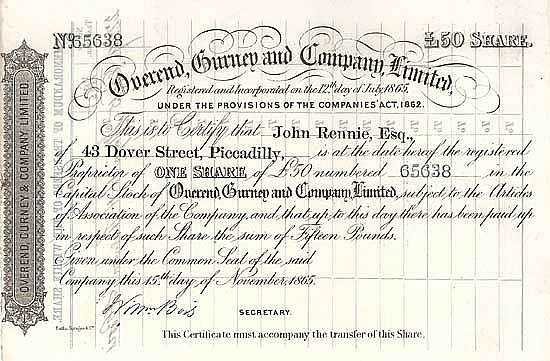 No 65638
£50 SHARE.
Overend, Gurney and Company, Limited,
Registered and Incorporated on the 12th day of July 1865,
UNDER THE PROVISIONS OF THE COMPANIES' ACT, 1862.
This is to Certify that John Rennie, Esq.,
of 43 Dover Street, Piccadilly, is at the date hereof the registered
Proprietor of ONE SHARE of £50 numbered 65638 in the
Capital Stock of Overend, Gurney and Company, Limited, subject to the Articles
of Association of the Company, and that up to this day there has been paid up
in respect of such Share the sum of Fifteen Pounds.
Given under the Common Seal of the said
Company this 15th day of November 1865.
SECRETARY.
This Certificate must accompany the transfer of this Share.
OVEREND, GURNEY & COMPANY LIMITED